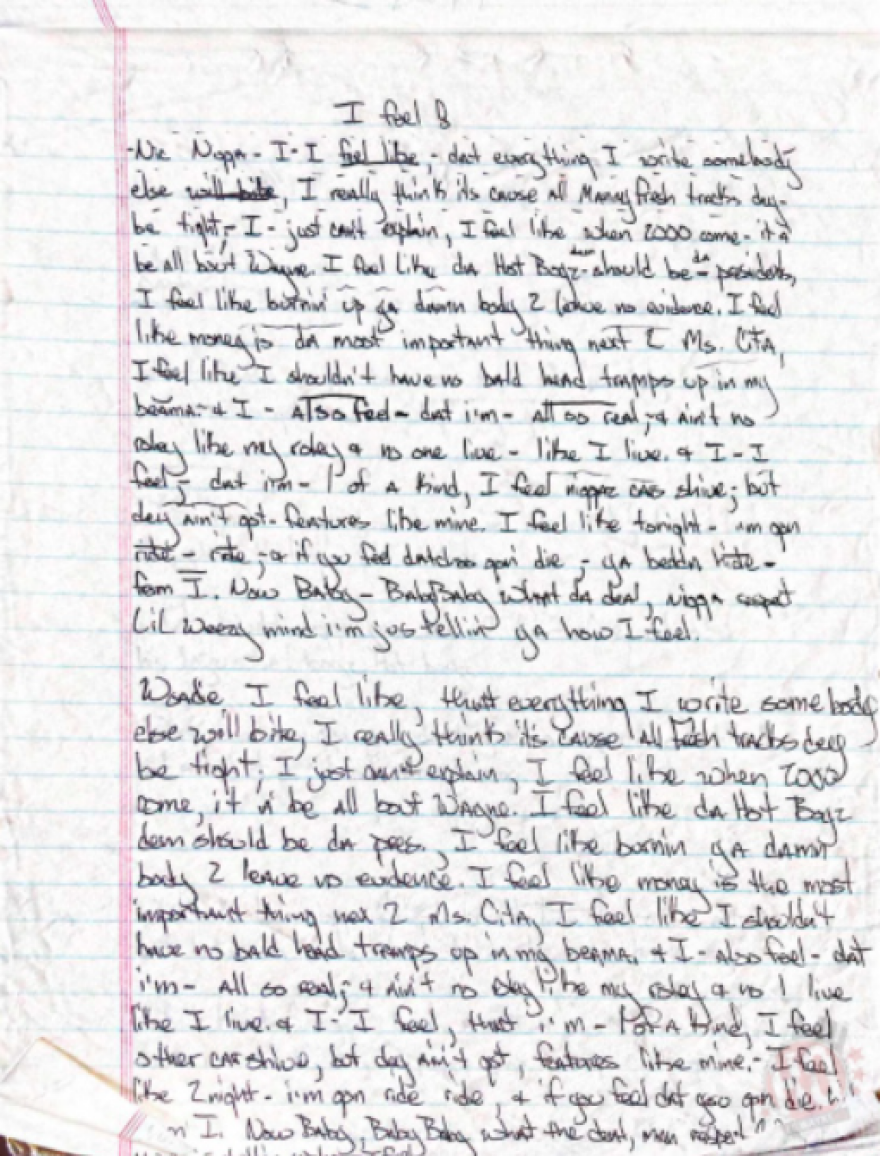 I feel 8
Nic Nigga - I - I feel like - dat everything I write somebody
else will bite, I really think its cause all Mannyfresh tracks dey-
be tight;- I - just can't explain, I feel like when 2000 come - it'n
be all bout Wayne. I feel like da Hot Boyz dem should be - da presidents,
I feel like burnin' up ya damn body 2 leave no evidence. I feel
like money is da most important thing next 2 Ms. CitA,
I feel like I shouldn't have no bald head tramps up in my
beama;- & I - Also feel - dat i'm - all so real;- & ain't no
roley like my roley & no one live - like I live. & I - I
feel;- dat i'm - 1 of a kind, I feel niggaz cars shive; but
dey ain't got - features like mine. I feel like tonight - i'm gon
ride - ride ;- & if you feel datchoo gon' die - ya beddn hide -
from I. Now Baby - BabyBaby what da deal, nigga respect
Lil Weezy mind i'm jus tellin' ya how I feel.
Woadie I feel like, that everything I write somebody
else will bite, I really think it's cause all Fresh tracks dey
be tight; I just can't explain, I feel like when 2000
come, it'n be all bout Wayne. I feel like da Hot Boyz
dem should be da pres., I feel like burnin ya damn
body 2 leave no evidence. I feel like money is the most
important thing nex 2 Ms. CitA, I feel like I shouldn't
have no bald head tramps up in my beama. & I - also feel - dat
i'm - all so real;- & ain't no roley like my roley & no 1 live
like I live. & I - I feel, that i'm - 1 of a kind, I feel
other car shive, but dey ain't got, features like mine.- I feel
like 2night - i'm gon ride ride, & if you feel dat yoo gon die.
I. Now Baby, BabyBaby what the deal, man respect